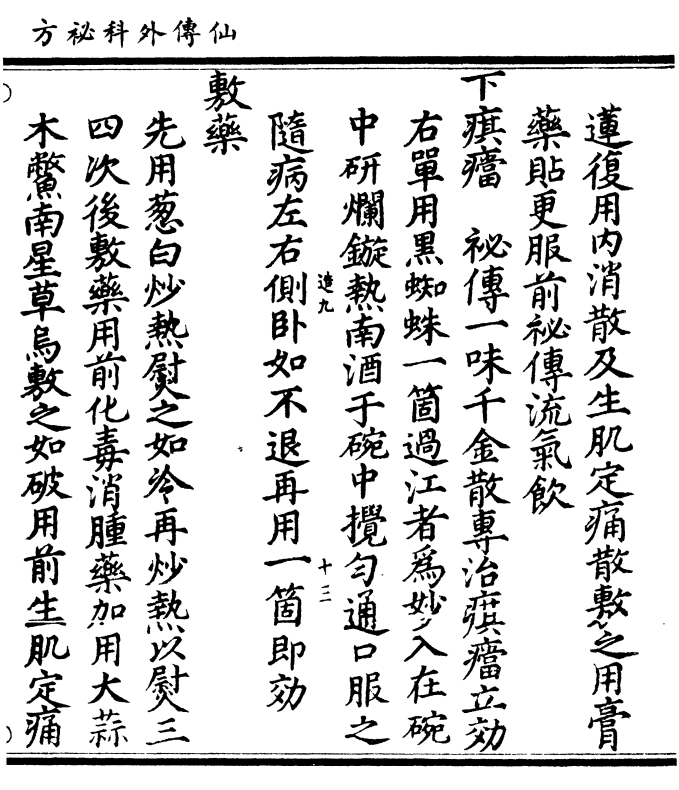 仙傳外科祕方
蓮復用内消散及生肌定痛散敷之用膏
藥貼更服前祕傳流氣飲
下㾵癗 祕傳一味千金散專治㾵癗立効
右單用黒蜘蛛一箇過江者爲妙入在碗
中研爛鏇熱南酒于碗中攪勻通口服之
隨病左右側卧如不退再用一箇即効
造九
十三
敷藥
先用葱白炒熱熨之如冷再炒熱以熨三
四次後敷藥用前化毒消腫藥加用大蒜
木鱉南星草烏敷之如破用前生肌定痛